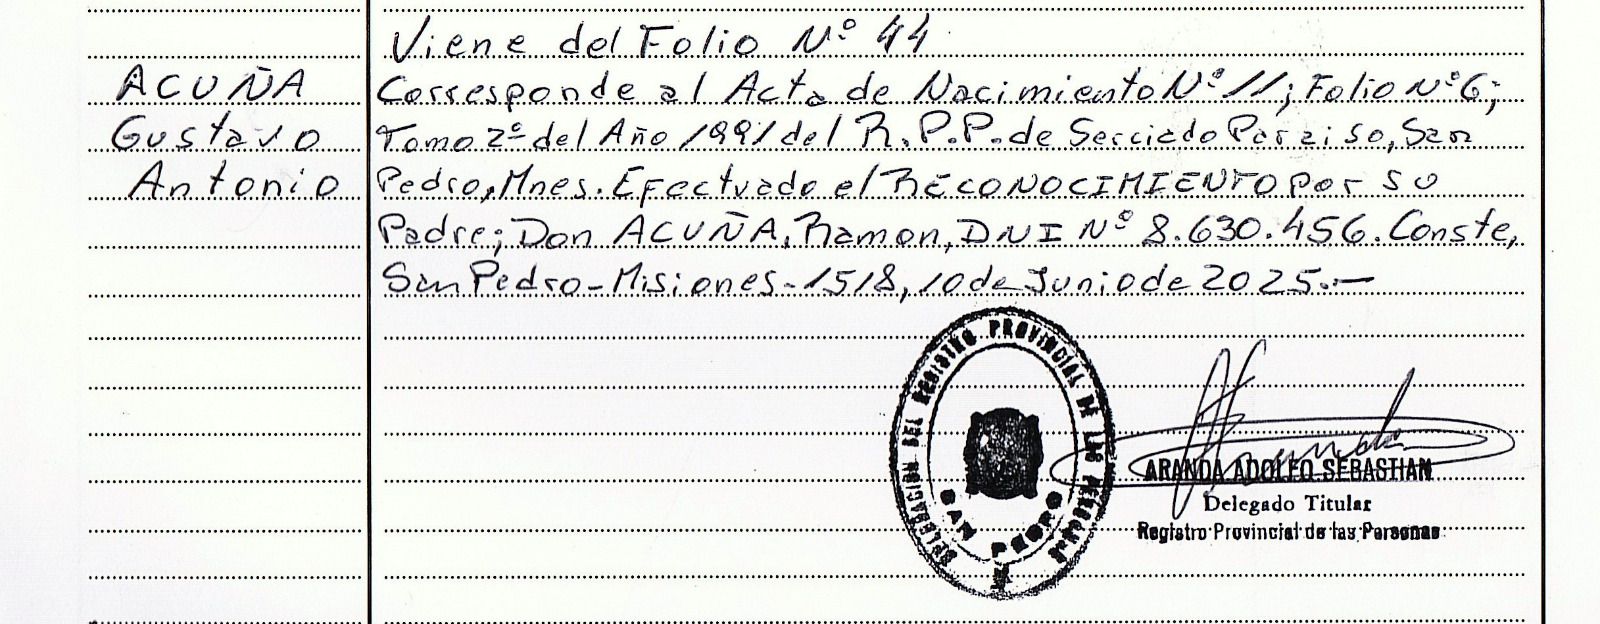 Viene del Folio Nº 44
ACUÑA
Gustavo
Antonio
Corresponde al Acta de Nacimiento Nº 11; Folio Nº 6;
Tomo 2º del Año 1991 del R.P.P. de Serciado Paraiso, San
Pedro, Mnes. Efectuado el RECONOCIMIENTO por su
Padre; Don ACUÑA, Ramon, DNI Nº 8.630.456. Conste,
San Pedro - Misiones - 1518, 10 de Junio de 2025.-
DELEGACION DEL REGISTRO PROVINCIAL DE LAS PERSONAS
SAN PEDRO
ARANDA ADOLFO SEBASTIAN
Delegado Titular
Registro Provincial de las Personas